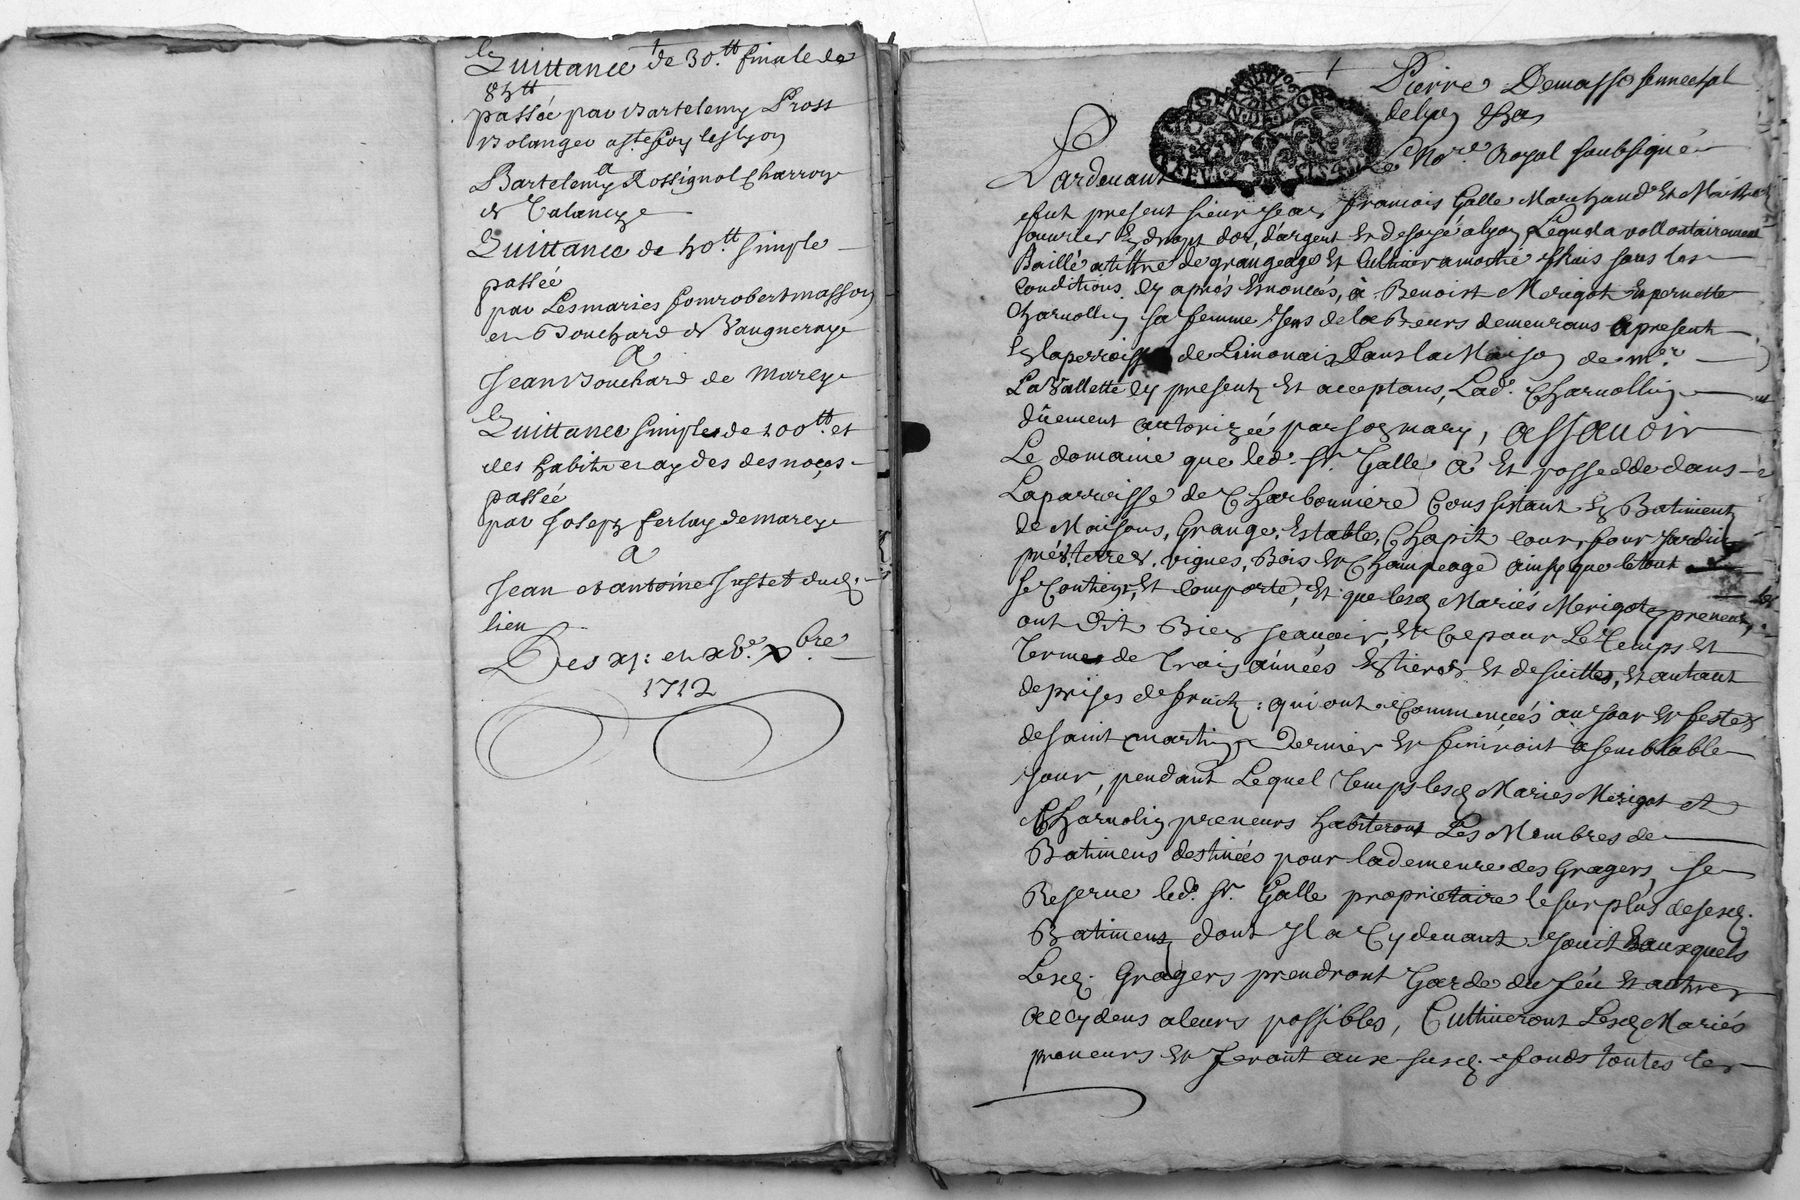 Quittance de 30.tt finale de
85tt
passée par Bartelemy Prost
Bolanger a ste foy les lyon
a
Bartelemy Rossignol Charron
de Talancye
Quittance de 40.tt simple
passée
par Les maries fomrobert masson
et Bouchard de Vaugneraye
a
Jean Bouchard de Marcye
Quittance simple de 100tt et
des habits et aydes des noces
passée
par Joseph ferlay de marcye
a
Jean et antoine Justet dud.
lieu
Des xj: et xve xbre
1712
Pierre Demasso sennechal
de lyon
Pardevant Le Nore. Royal soubsigné
fut present sieur Jean francois Galle Marchand Et Maitre
ouvrier En drapt dor, d'argent Et de soye a lyon Lequel a vollontairement
Baillé a tittre de grangeage Et Cultiver a moitié fruis sous les
conditions cy aprés Enoncées, à Benoist Merigot Et pernette
Charvollin sa femme Gens de la Beurs demeurans apresent
En la perroisse de Limonais Dans la Maison de mer
La Vallette cy present Et acceptans, Lad. Charvollin
dûement autorizée par son mary, assavoir
Le domaine que led. sr. Galle a Et possedde dans
La parroisse de Charbonniere Conssistant En Batiment
de Maisons, Grange, Estable, Chapit cour, four Jardin
prés, terres, vignes, Bois Et Champeage ainsy que le tout
se Contient, Et Comporte, Et que lesd Mariés Merigot preneurs
ont dit Bien scavoir, Et Ce pour Le Temps Et
Terme de Trois années Entieres Et de suittes, Et autant
de prises de fruits: qui ont Commencées au Jour Et feste
de saint martin Dernier Et finiront a semblable
Jour, pendant Lequel Temps lesd Maries Merigot et
Charvolin preneurs habiteront Les Membres de
Batimens destinées pour la demeure des Gragers, se
Reserve led. sr. Galle proprietaire le surplus desesd.
Batimens dont Jl a Cydevant Jouit Eauxquels
Lesd. Gragers prendront Garde du feu Et autres
accydens a leurs possibles, Cultiveront Lesd Mariés
preneurs Et feront aux susd. fonds toutes les